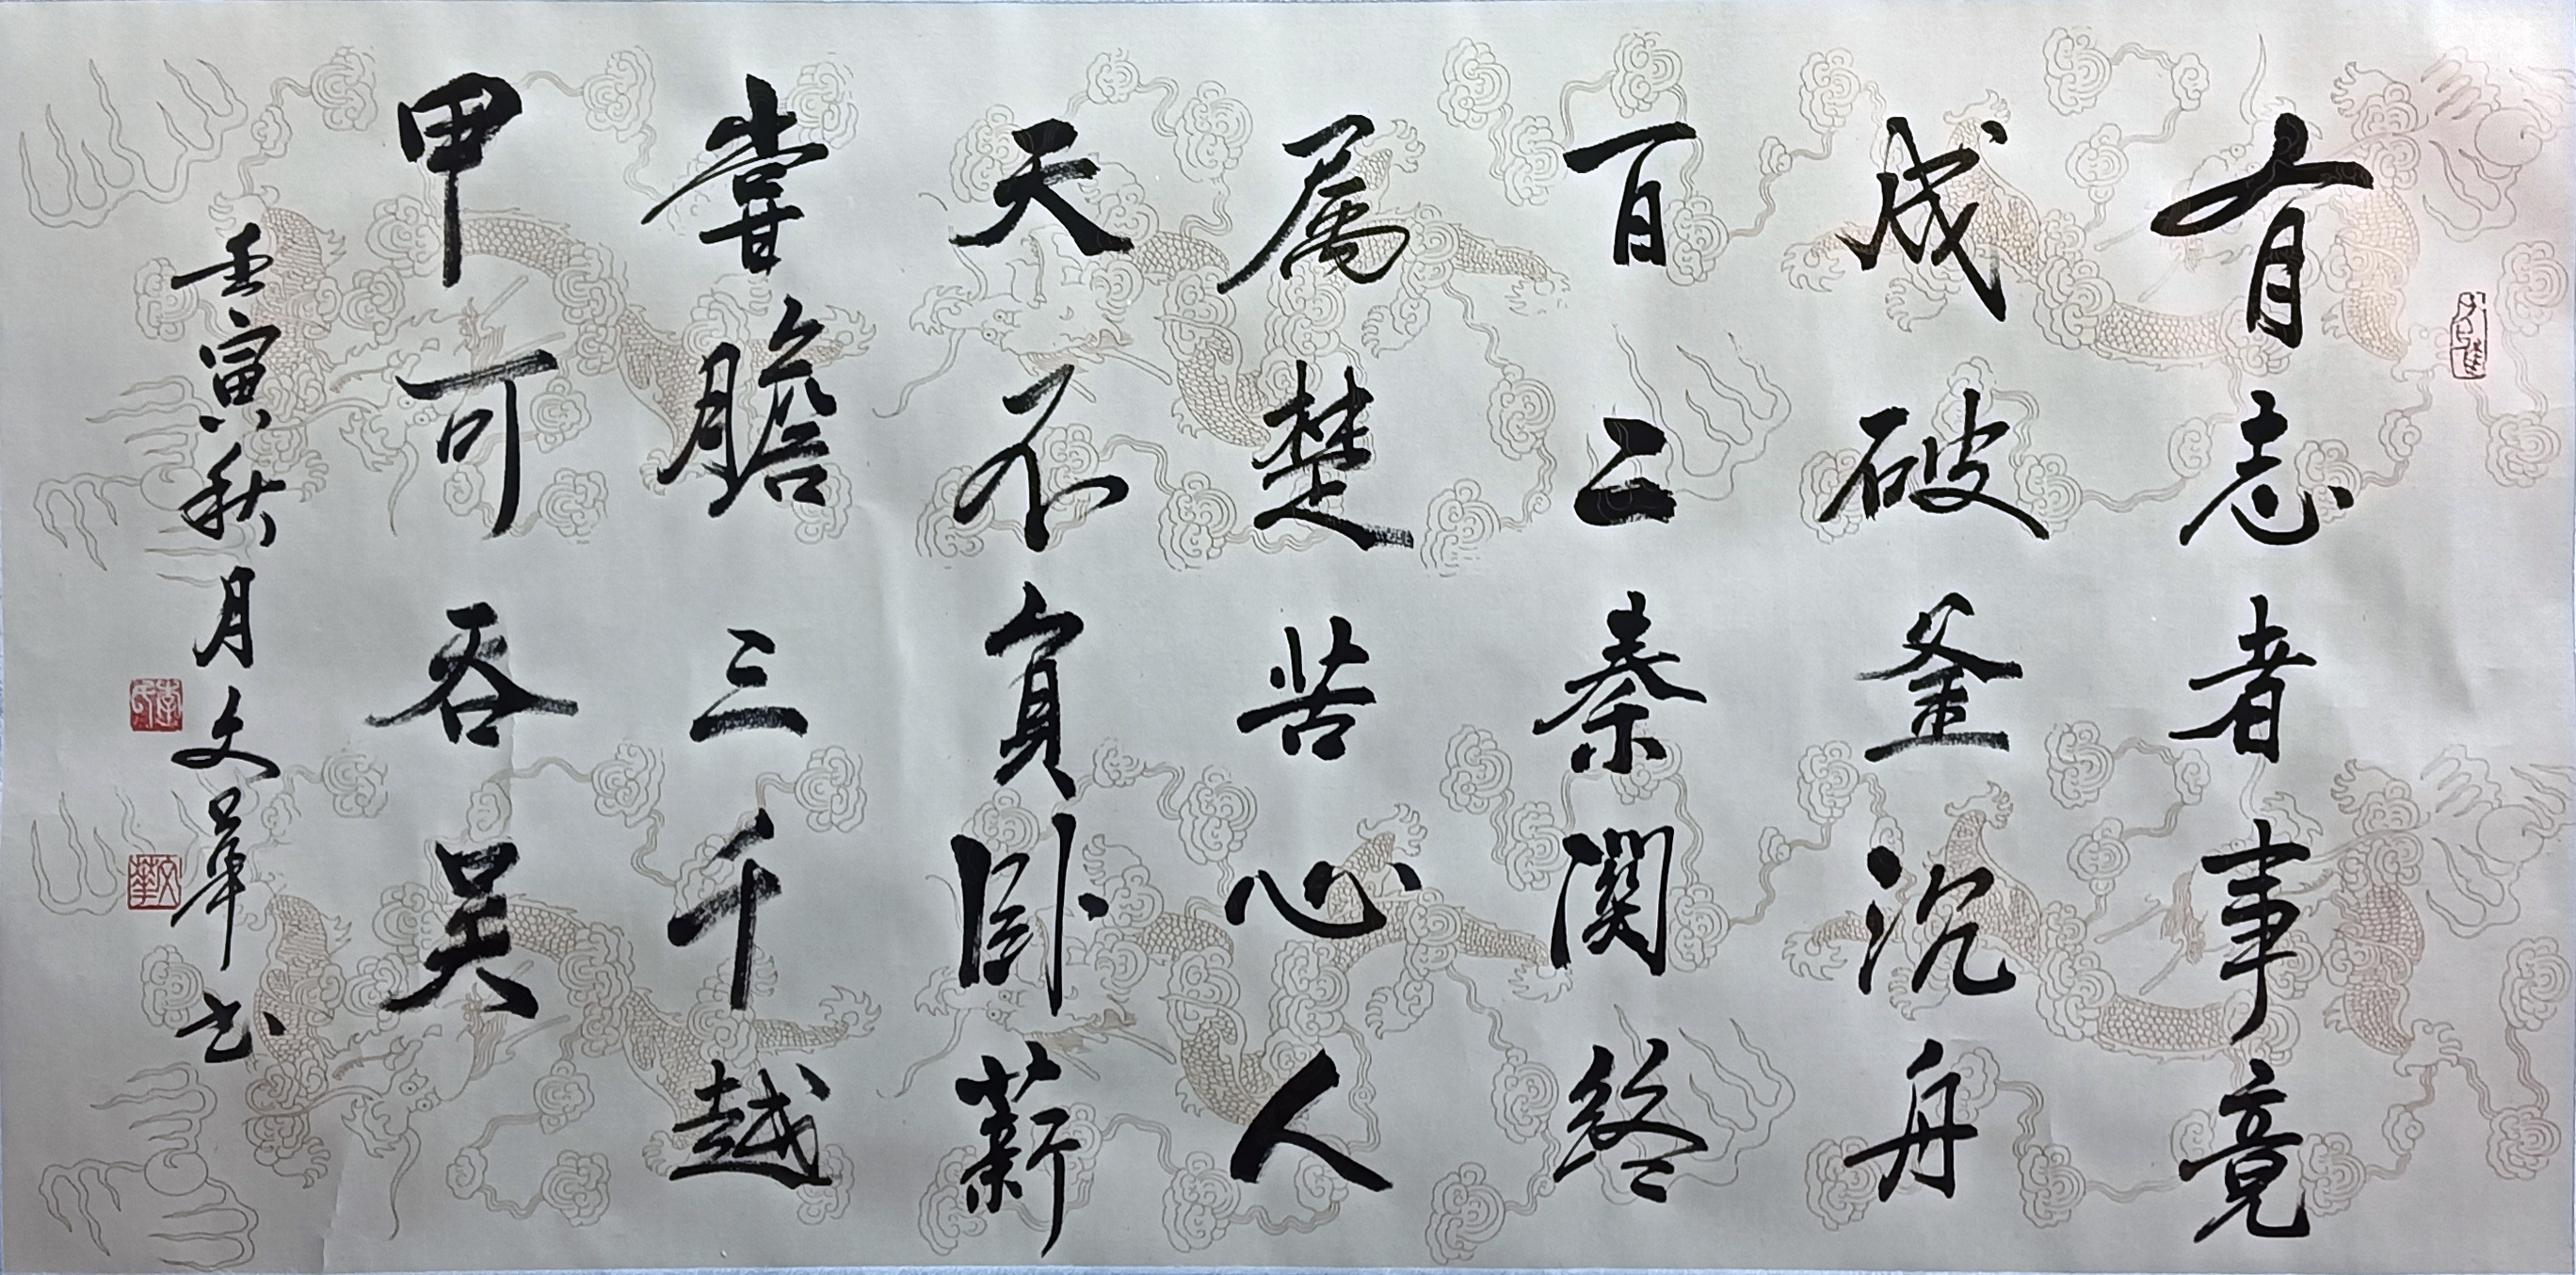 有志者事竟
成破釜沉舟
百二秦関終
属楚苦心人
天不負卧薪
嘗膽三千越
甲可吞吴
壬寅秋月文華书
李氏
文華